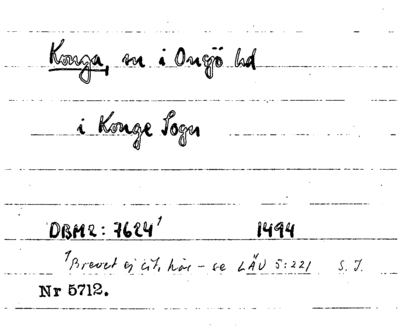 Konga, sn i Onsjö hd
i Konge Sogn
DBM2: 7624¹ 1494
¹Brevet ej cit. här – se LÄU 5:221 S. J.
Nr 5712.